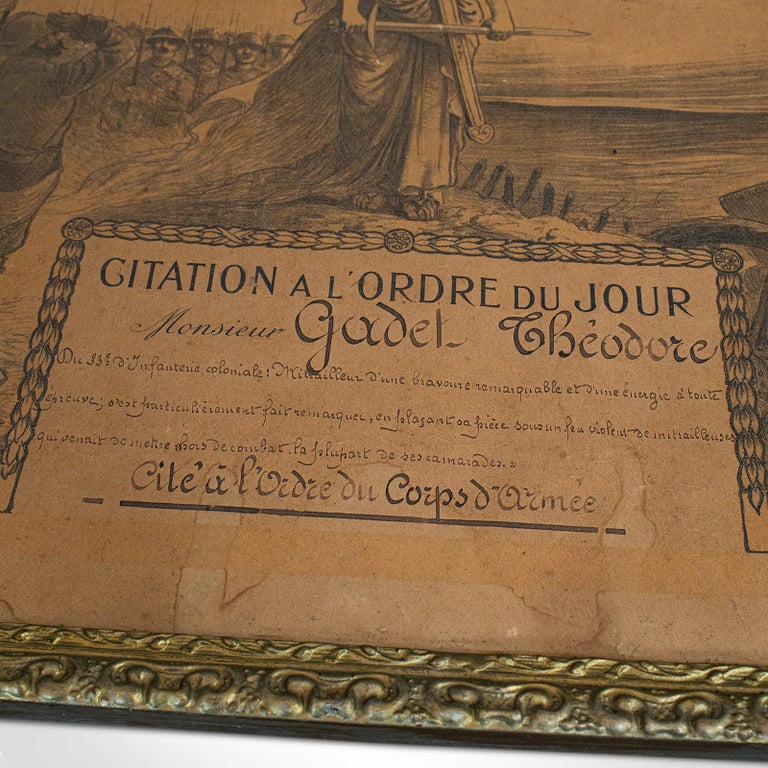 CITATION A L'ORDRE DU JOUR
Monsieur Gadel Théodore
Du 33e d'Infanterie coloniale: Mitrailleur d'une bravoure remarquable et d'une énergie à toute
épreuve; s'est particulièrement fait remarquer, en plaçant sa pièce sous un feu violent de mitrailleuses
qui venait de metre hors de combat, la plupart de ses camarades."
Cité à l'Ordre du Corps d'Armée